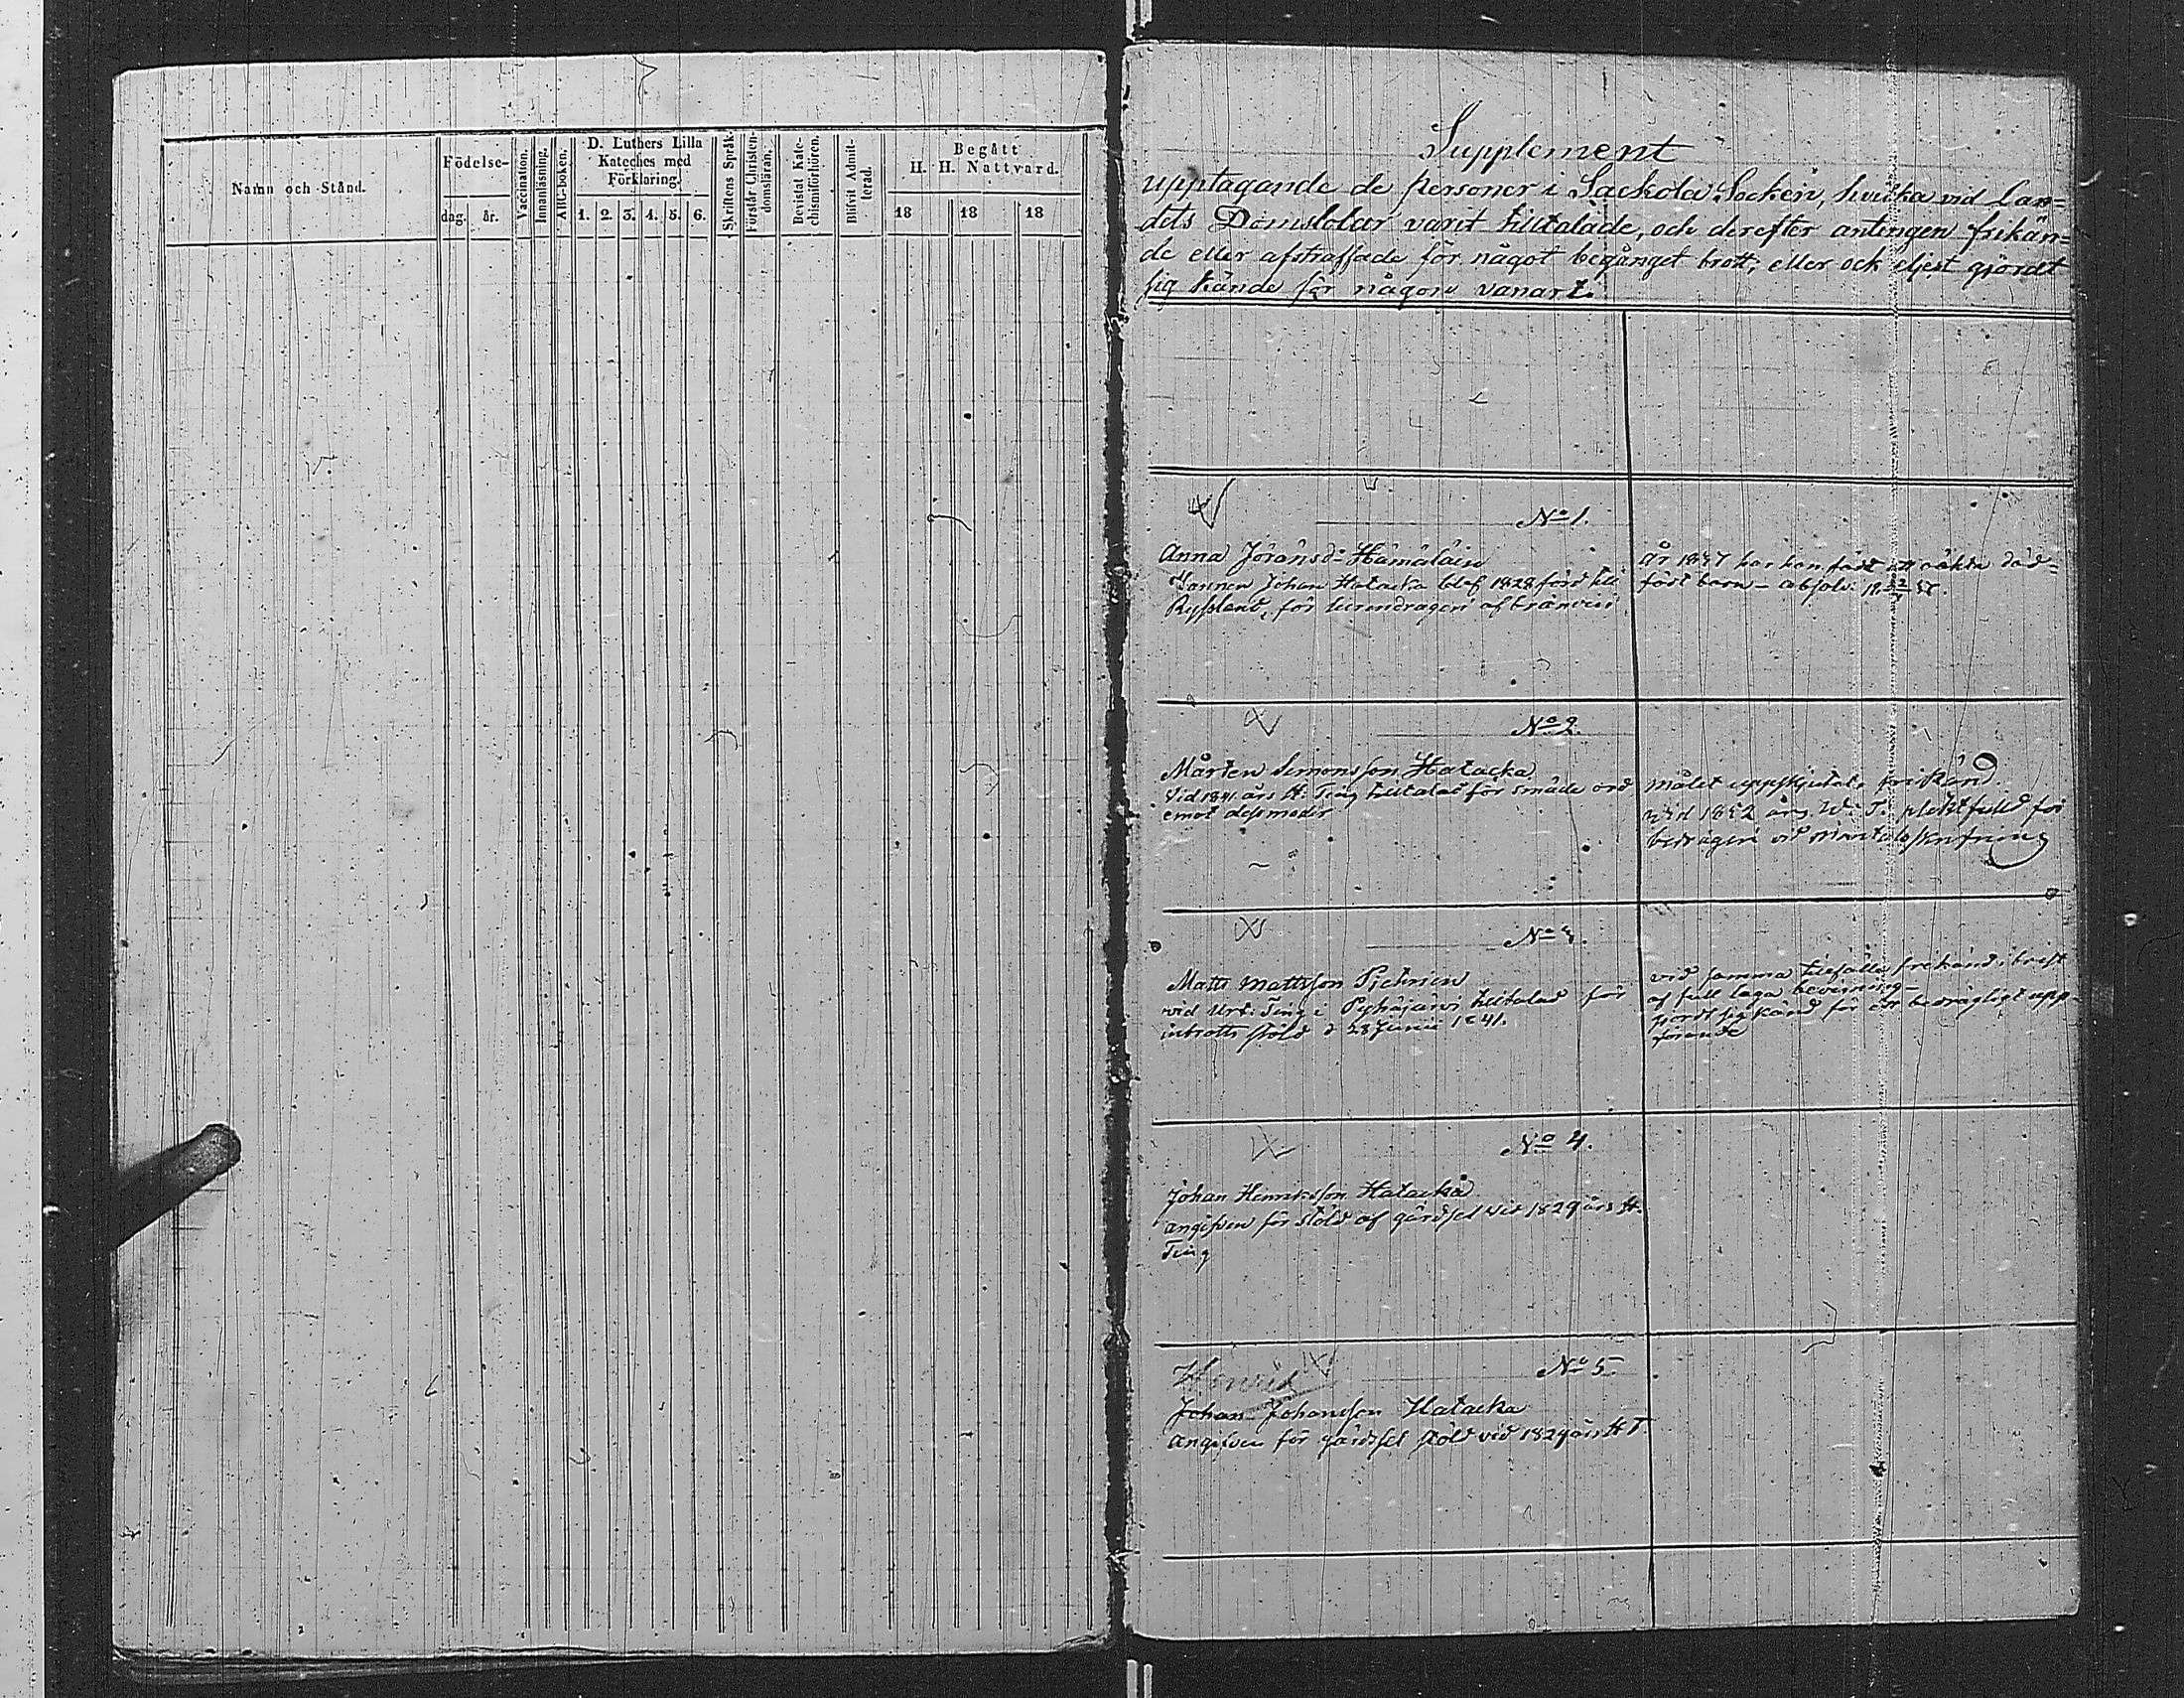 Namn och Stånd.
Födelse-
dag. år.
Vaccination.
Innanläsning.
ABC-boken.
D. Luthers Lilla
Kateches med
Förklaring.
1. 2. 3. 4. 5. 6.
Skriftens Språk.
Förstår Christen-
domsläran.
Bevistat Kate-
chismiförhören.
Blifvit Admit-
terad.
Begått
H. H. Nattvard.
18 18 18
Supplement
upptagande de personer i Sackola Socken, hvilka vid Lan=
dets Domstolar varit tilltalade, och derefter antingen frikän=
de eller afstraffade för något begånget brott, eller ock eljest gjordt
sig kände för någon vanart.
No 1.
Anna Jöransdr Hämäläin
Mannen Johan Hatacka blef 1828 förd till
Ryssland, för lurendrägeri af bränvin
År 1847 har hon födt ett oäkta död=
födt barn – absolv. 18
No 2.
Mårten Simonsson Hatacka
Vid 1841 års H. Ting tilltalad för smäde ord
emot dess moder
målet uppskjutet, frikänd
vid 1842 års W. T. pliktfälld för
bedrägeri vid Mantalsskrifning
No 3.
Matts Mattsson Pjetinen
vid Urt. Ting i Pyhäjärvi tilltalad för
inbrotts stöld d 28 Junii 1841.
vid samma tillfälle frikänd i brist
af full laga bevisning –
gjordt sig känd för ett bedrägligt upp-
förande
No 4.
Johan Henriksson Hatacka
angifven för stöld af gärdsel vid 1829 års H.
Ting
No 5.
Henrik
Johan Johansson Hatacka
angifven för gärdsel stöld vid 1829 års H T.